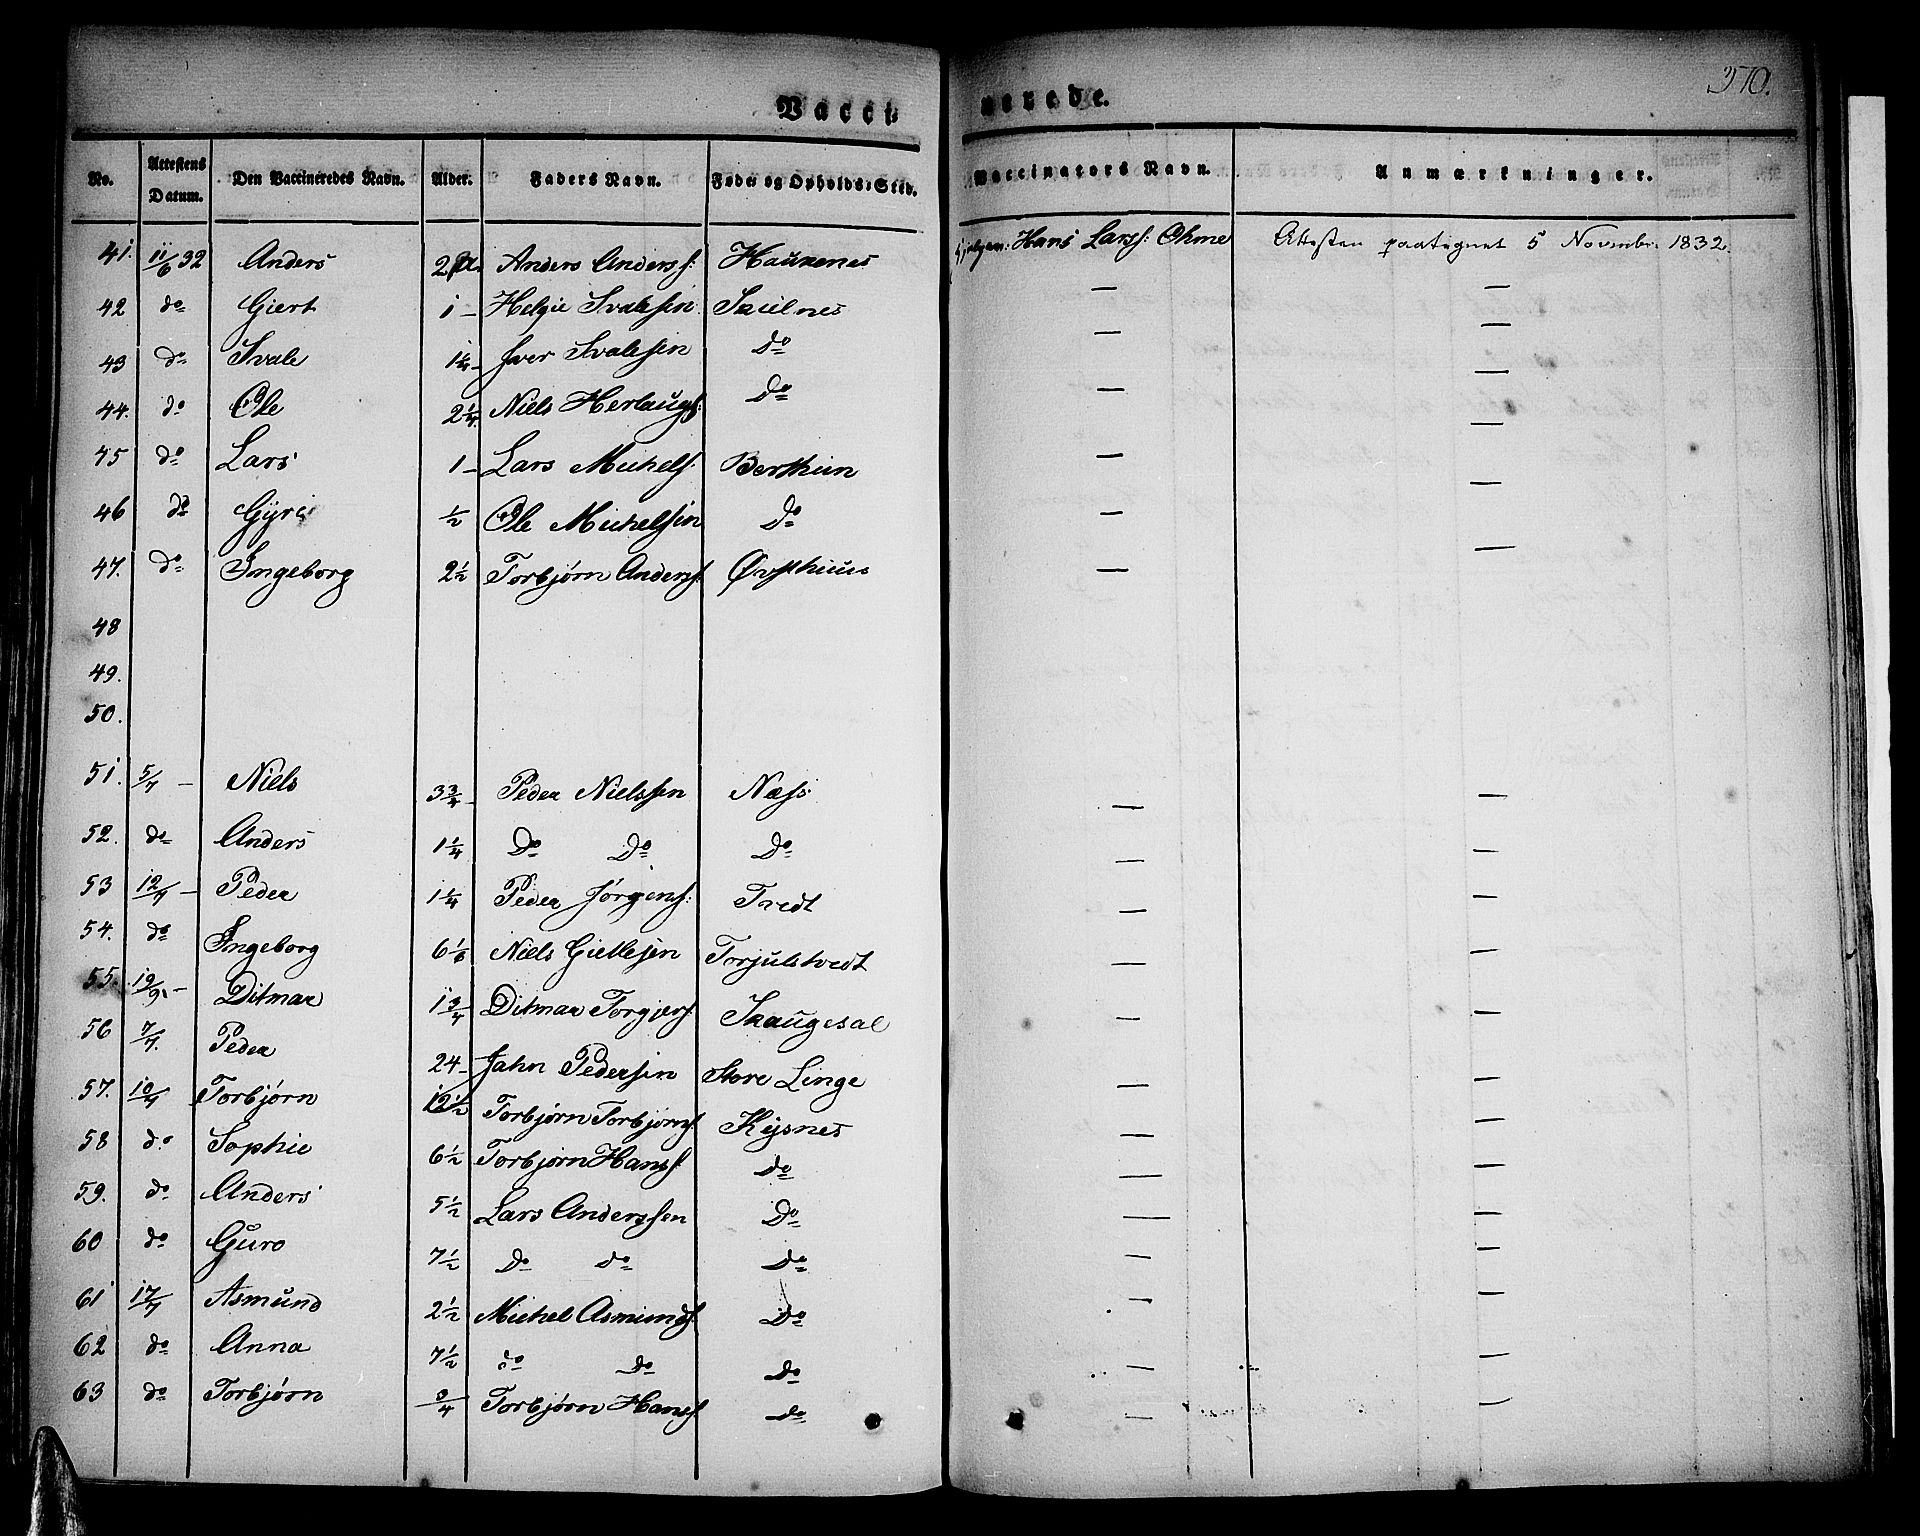 370.
Vacci nerede.
No. | Attestens Datum. | Den Vaccineredes Navn. | Alder. | Faders Navn. | Føde- og Opholds-Sted. | Vaccinators Navn. | Anmærkninger.
41. | 11/6 32 | Anders | 2 | Anders Anderss: | Haukenes | Hans Larss: Ohme | Attesten paategnet 5 Novembr. 1832.
42 | do | Giert | 1 – | Helgie Svalesen | Skielnes | — | —
43 | do | Svale | 1 1/4 – | Iver Svalesen | Do | — | —
44. | do | Ole | 2 1/4. | Niels Herlaugs: | Do | — | —
45 | do | Lars | 1 – | Lars Michels: | Berthun | — | —
46 | do | Gyri | 1/2 | Ole Michelsen | Do | — | —
47. | do | Ingeborg | 2 1/2 | Torbjørn Anderss: | Øvsthuus | — | —
48
49.
50.
51. | 5/7 – | Niels | 3 3/4 – | Peder Nielssen | Næss | — | —
52. | do | Anders | 1 1/4 | Do Do | Do | — | —
53 | 12/7 – | Peder | 1 1/4 | Peder Jørgens: | Tvedt | — | —
54. | do | Ingeborg | 6 | Niels Gietlesen | Torjulstvedt | — | —
55. | 19/9. – | Ditmar | 1 3/4 | Ditmar Torgiers: | Skaugesal | — | —
56 | 7/7. | Peder | 24 – | Jahn Pedersen | Store Linge | — | —
57. | 10/7 | Torbjørn | 12 1/2 | Torbjørn Torbjørns: | Kysnes | — | —
58 | do | Sophie | 6 1/2 | Torbjørn Hanss: | Do | — | —
59. | do | Anders | 5 1/2 | Lars Anderssen | Do | — | —
60 | do | Guro | 7 1/2 | Do do | Do | — | —
61 | 17/7 | Asmund | 2 1/2 | Michel Asmunds: | Do | — | —
62 | do | Anna | 7 1/2 | do Do | Do | — | —
63 | do | Torbjørn | 3/4 | Torbjørn Hanss: | Do | — | —